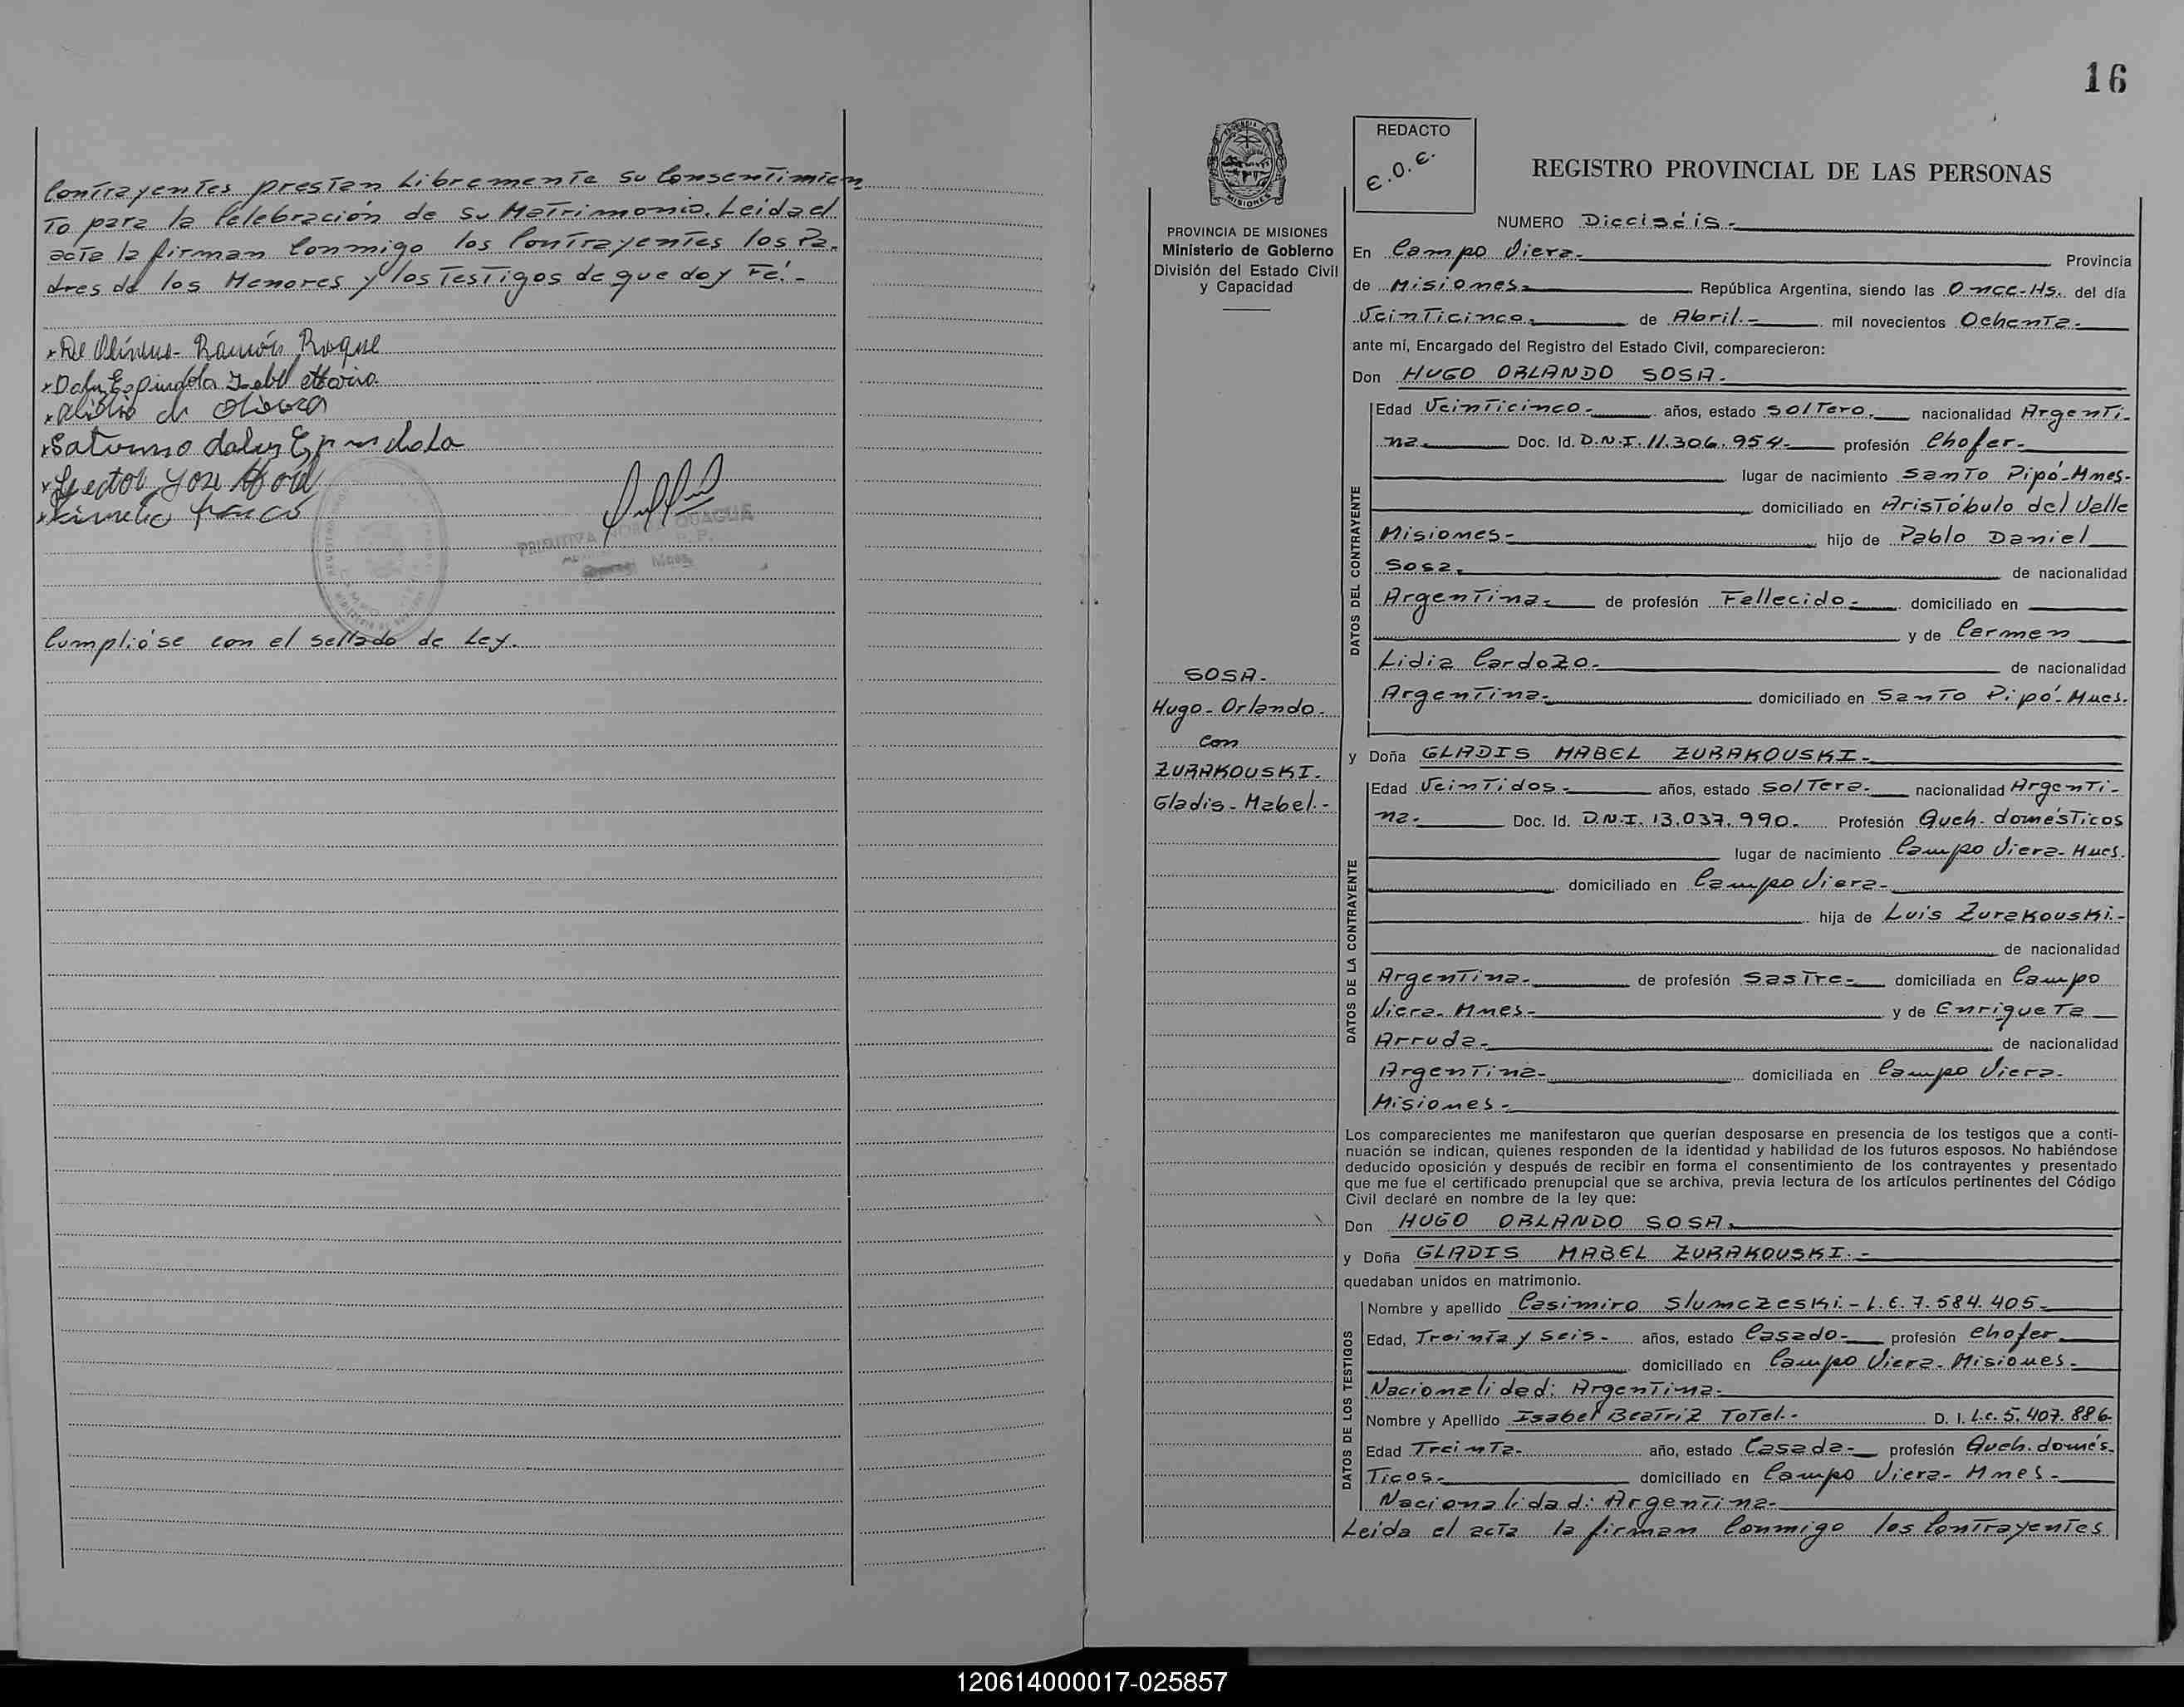 Contrayentes prestan Libremente su Consentimien
To para la Celebración de su Matrimonio. Leida el
acta la firman Conmigo los Contrayentes los Pa-
dres de los Menores y los Testigos de que doy Fé.-
Ramón Roque
Saturno
Cumplióse con el sellado de Ley.
16
REDACTO
E.O.E.
REGISTRO PROVINCIAL DE LAS PERSONAS
MISIONES
PROVINCIA DE MISIONES
Ministerio de Gobierno
División del Estado Civil
y Capacidad
SOSA.-
Hugo-Orlando-
Con
ZURAKOUSKI.-
Gladis-Mabel.-
NUMERO Dieciséis.-
En Campo Viera.- Provincia
de Misiones.- República Argentina, siendo las Once-Hs. del día
Veinticinco.- de Abril.- mil novecientos Ochenta.-
ante mí, Encargado del Registro del Estado Civil, comparecieron:
Don HUGO ORLANDO SOSA.-
DATOS DEL CONTRAYENTE
Edad Veinticinco.- años, estado Soltero.- nacionalidad Argenti-
na.- Doc. Id. D.N.I. 11.306.954.- profesión Chofer.-
lugar de nacimiento Santo Pipó-Mnes-
domiciliado en Aristóbulo del Valle
Misiones.- hijo de Pablo Daniel
Sosa.- de nacionalidad
Argentina.- de profesión Fallecido.- domiciliado en
y de Carmen
Lidia Cardozo.- de nacionalidad
Argentina.- domiciliado en Santo Pipó-Mnes.
y Doña GLADIS MABEL ZURAKOUSKI.-
DATOS DE LA CONTRAYENTE
Edad Veintidos.- años, estado Soltera.- nacionalidad Argenti-
na.- Doc. Id. D.N.I. 13.037.990.- Profesión Queh. domésticos
lugar de nacimiento Campo Viera-Mnes.
domiciliado en Campo Viera-
hija de Luis Zurakouski-
de nacionalidad
Argentina.- de profesión Sastre.- domiciliada en Campo
Viera-Mnes- y de Enriqueta
Arruda.- de nacionalidad
Argentina.- domiciliada en Campo Viera-
Misiones.-
Los comparecientes me manifestaron que querían desposarse en presencia de los testigos que a conti-
nuación se indican, quienes responden de la identidad y habilidad de los futuros esposos. No habiéndose
deducido oposición y después de recibir en forma el consentimiento de los contrayentes y presentado
que me fue el certificado prenupcial que se archiva, previa lectura de los artículos pertinentes del Código
Civil declaré en nombre de la ley que:
Don HUGO ORLANDO SOSA.-
y Doña GLADIS MABEL ZURAKOUSKI.-
quedaban unidos en matrimonio.
DATOS DE LOS TESTIGOS
Nombre y apellido Casimiro Slumczeski.- L.E. 7.584.405.-
Edad, Treinta y seis.- años, estado Casado.- profesión Chofer
domiciliado en Campo Viera-Misiones-
Nacionalidad: Argentina.-
Nombre y Apellido Isabel Beatriz Totel.- D. I. L.C. 5.407.886-
Edad Treinta.- año, estado Casada.- profesión Queh. domés-
Ticos.- domiciliado en Campo Viera-Mnes-
Nacionalidad: Argentina.-
Leida el acta la firman Conmigo los Contrayentes
120614000017-025857